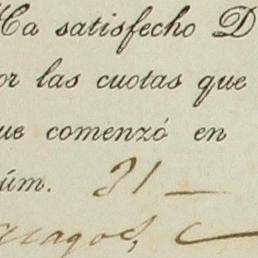 Ha satisfecho D
or las cuotas que
ue comenzó en
úm. 31 —